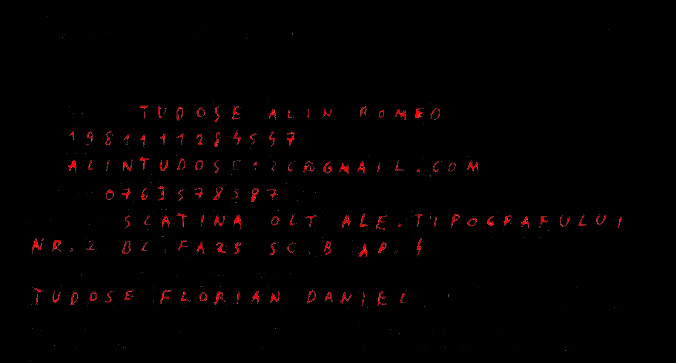 TUDOSE ALIN ROMEO
1981111284547
ALINTUDOSE126@GMAIL.COM
0763578587
SLATINA OLT ALE.TIPOGRAFULUI
NR. 2 BL. FA25 SC.B AP. 4
TUDOSE FLORIAN DANIEL